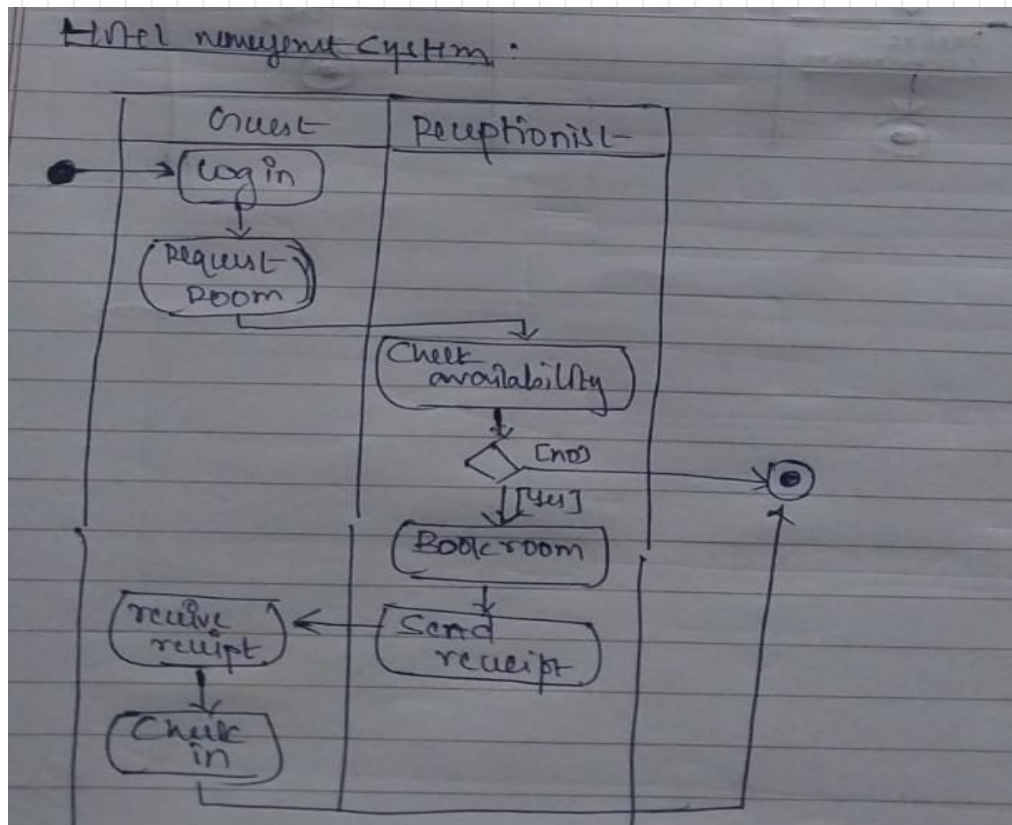 Hotel System.
Guest
Receptionist
Log in
Request
Room
Check
availability
[no]
[Yes]
Book room
Send
receipt
receive
receipt
Check
in